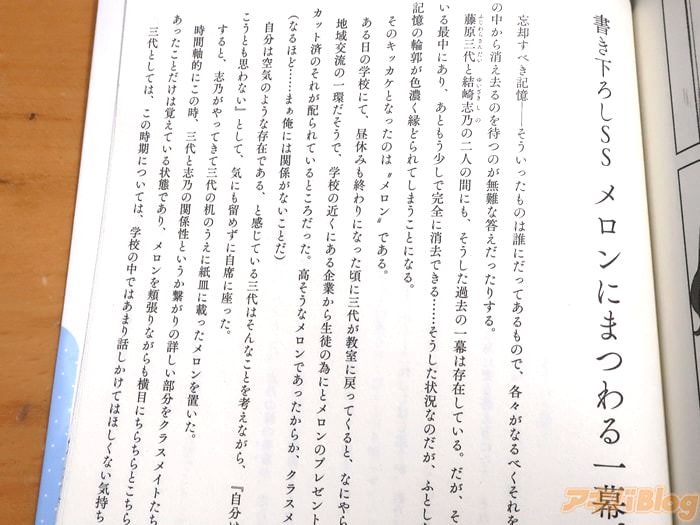 書き下ろしSS メロンにまつわる一幕
忘却すべき記憶――そういったものは誰にだってあるもので、各々がなるべくそれを
の中から消え去るのを待つのが無難な答えだったりする。
藤原三代と結崎志乃の二人の間にも、そうした過去の一幕は存在している。だが、そ
いる最中にあり、あともう少しで完全に消去できる……そうした状況なのだが、ふとし
記憶の輪郭が色濃く縁どられてしまうことになる。
そのキッカケとなったのは〝メロン〟である。
ある日の学校にて、昼休みも終わりになった頃に三代が教室に戻ってくると、なにやら
地域交流の一環だそうで、学校の近くにある企業から生徒の為にとメロンのプレゼント
カット済のそれが配られているところだった。高そうなメロンであったからか、クラスメ
(なるほど……まぁ俺には関係がないことだ)
自分は空気のような存在である、と感じている三代はそんなことを考えながら、『自分は
こうとも思わない』として、気にも留めずに自席に座った。
すると、志乃がやってきて三代の机のうえに紙皿に載ったメロンを置いた。
時間軸的にこの時、三代と志乃の関係性というか繋がりの詳しい部分をクラスメイトた
あったことだけは覚えている状態であり、メロンを頬張りながらも横目にちらちらとこちら
三代としては、この時期については、学校の中ではあまり話しかけてはほしくない気持ち
アキバBlog